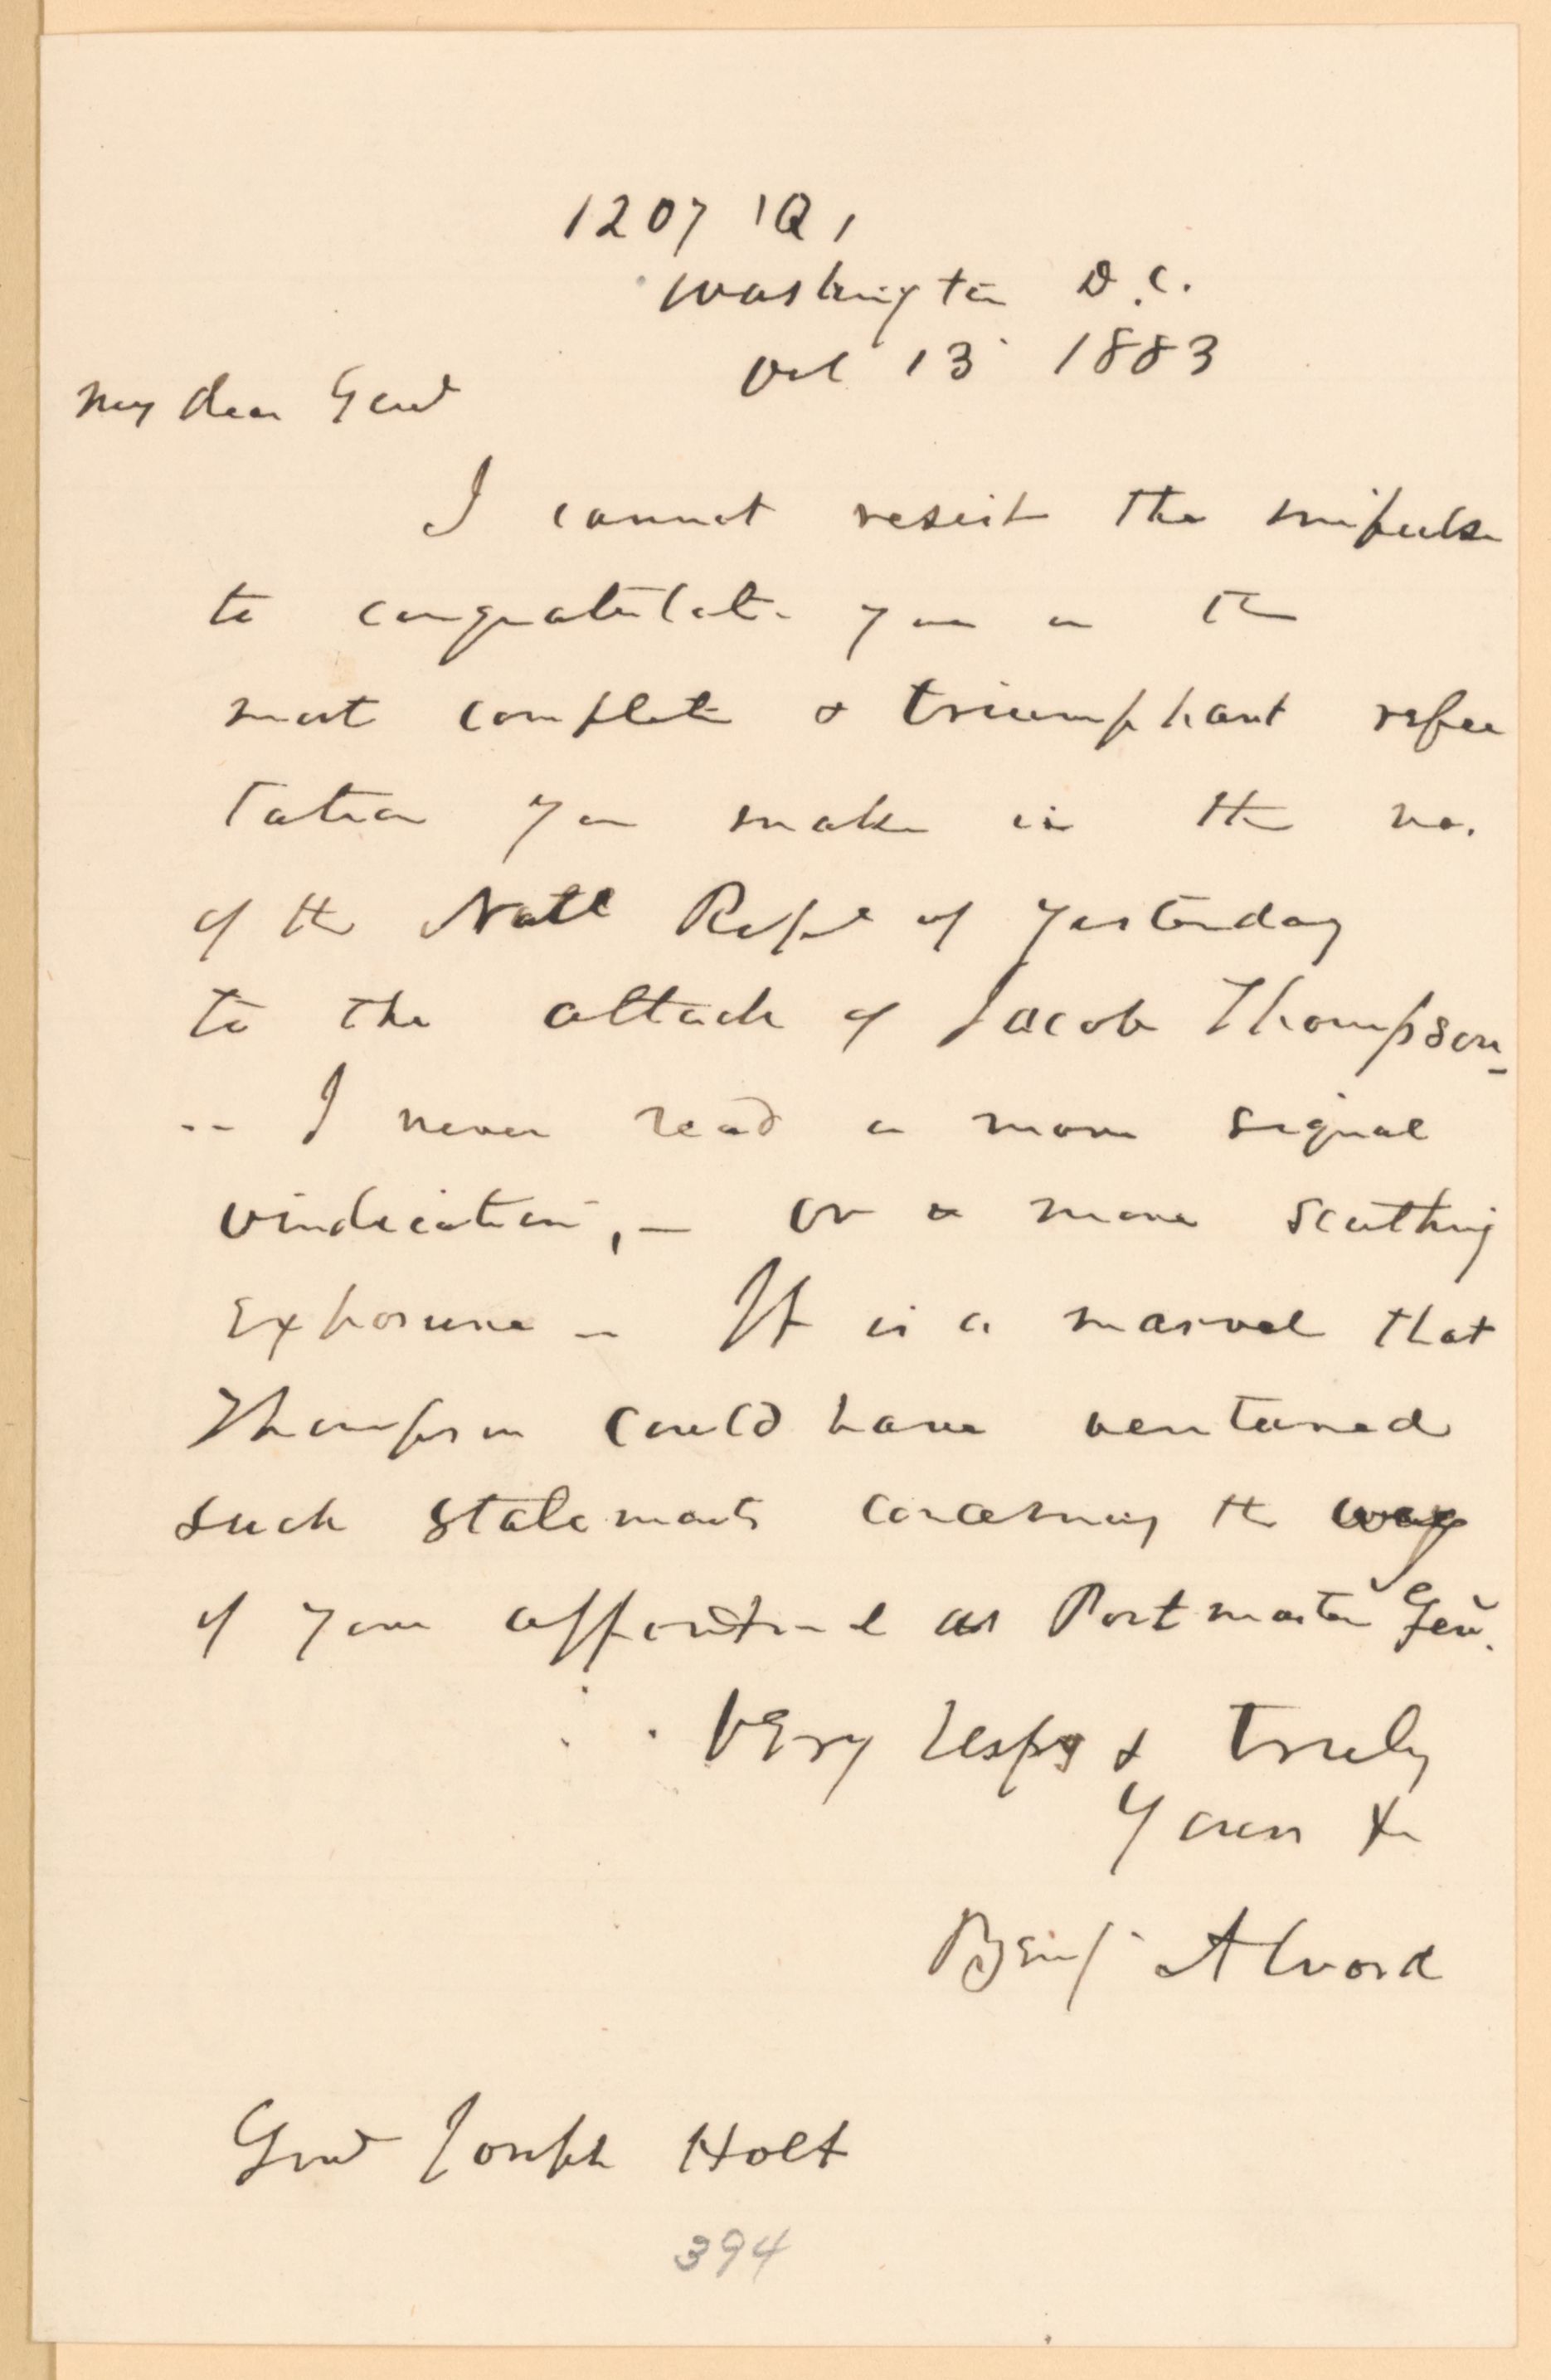 1207 'Q,
Washington D.C.
Oct 13 1883
My dear Genl
I cannot resist the impulse
to congratulate you on the
most complete & triumphant refu
tation you make in the no.
of the Natl Repl of yesterday
to the attack of Jacob Thompson_
-- I never read a more signal
vindication, — or a more scathing
exposure — It is a marvel that
Thompson could have ventured
such statements concerning the way
of your appointmt as Postmaster Genl.
Very respy & truly
Yours &c
Benj Alvord
Genl Joseph Holt
394